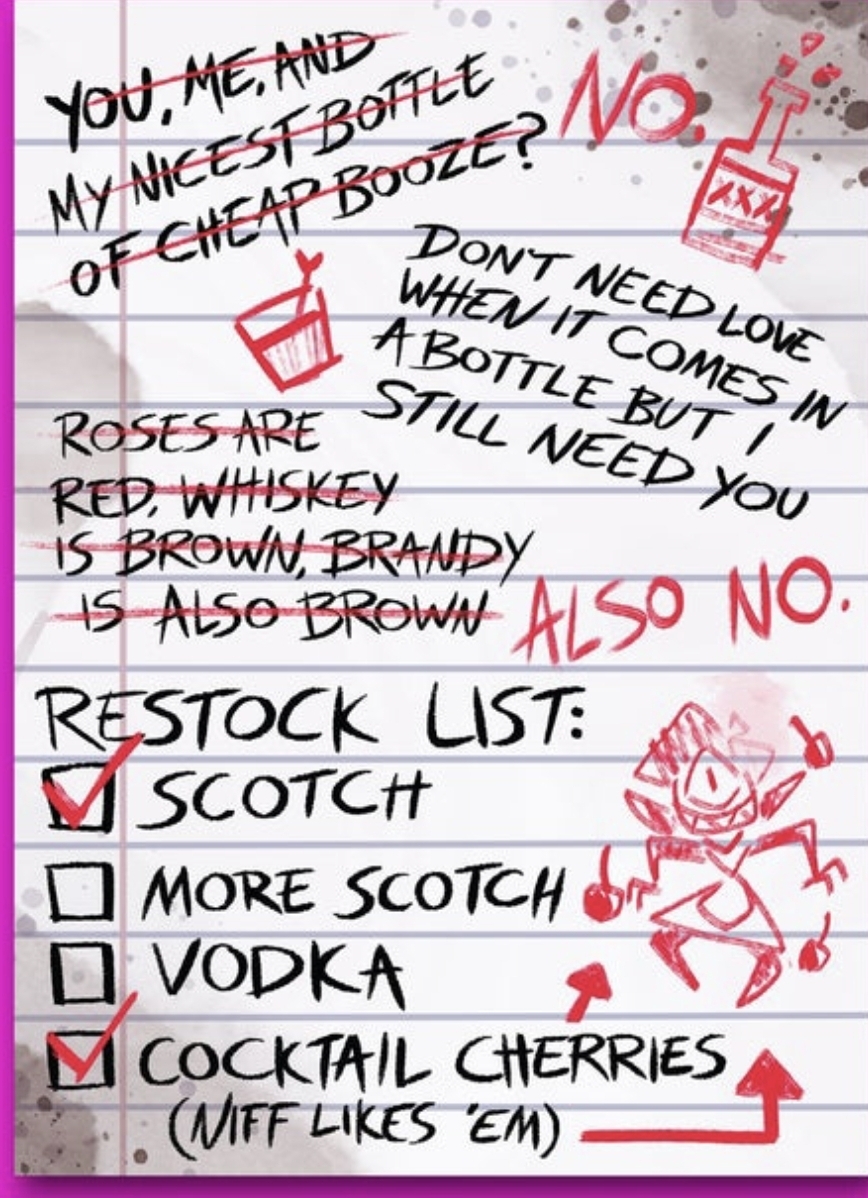 YOU, ME, AND
MY NICEST BOTTLE
OF CHEAP BOOZE?
NO.
XXX
DON'T NEED LOVE
WHEN IT COMES IN
A BOTTLE BUT I
STILL NEED YOU
ROSES ARE
RED, WHISKEY
IS BROWN, BRANDY
IS ALSO BROWN
ALSO NO.
RESTOCK LIST:
SCOTCH
MORE SCOTCH
VODKA
COCKTAIL CHERRIES
(NIFF LIKES 'EM)